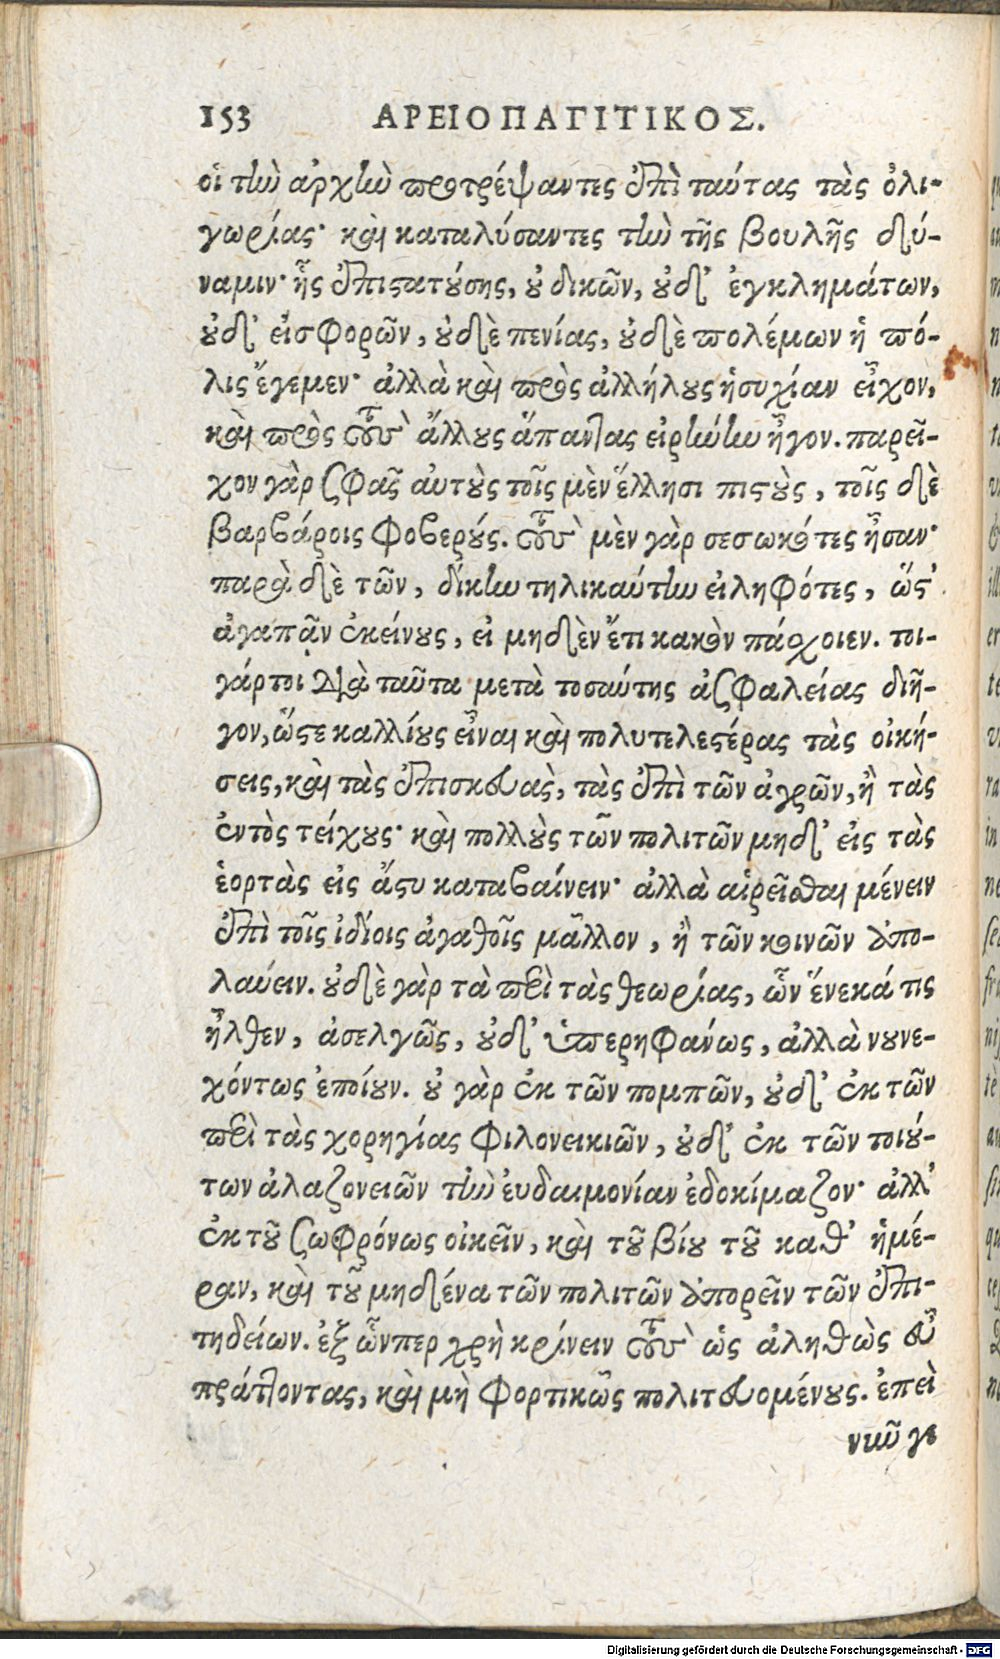 153 ΑΡΕΙΟΠΑΓΙΤΙΚΟΣ.
οἱ τὴν ἀρχὴν προτρέψαντες ἐπὶ ταύτας τὰς ὀλι-
γωρίας· καὶ καταλύσαντες τὴν τῆς βουλῆς δύ-
ναμιν· ἧς ἐπιστατούσης, οὐ δικῶν, οὐδ' ἐγκλημάτων,
οὐδ' εἰσφορῶν, οὐδὲ πενίας, οὐδὲ πολέμων ἡ πό-
λις ἔγεμεν· ἀλλὰ καὶ πρὸς ἀλλήλους ἡσυχίαν εἶχον,
καὶ πρὸς τοὺς ἄλλους ἅπαντας εἰρήνην ἦγον. παρεῖ-
χον γὰρ σφᾶς αὐτοὺς τοῖς μὲν ἕλλησι πιστοὺς, τοῖς δὲ
βαρβάροις φοβερούς. τοὺς μὲν γὰρ σεσωκότες ἦσαν·
παρὰ δὲ τῶν, δίκην τηλικαύτην εἰληφότες, ὥστ'
ἀγαπᾷν ἐκείνους, εἰ μηδὲν ἔτι κακὸν πάσχοιεν. τοι-
γάρτοι διὰ ταῦτα μετὰ τοσαύτης ἀσφαλείας διῆ-
γον, ὥστε καλλίους εἶναι καὶ πολυτελεστέρας τὰς οἰκή-
σεις, καὶ τὰς ἐπισκευὰς, τὰς ἐπὶ τῶν ἀγρῶν, ἢ τὰς
ἐντὸς τείχους· καὶ πολλοὺς τῶν πολιτῶν μηδ' εἰς τὰς
ἑορτὰς εἰς ἄστυ καταβαίνειν· ἀλλὰ αἱρεῖσθαι μένειν
ἐπὶ τοῖς ἰδίοις ἀγαθοῖς μᾶλλον, ἢ τῶν κοινῶν ἀπο-
λαύειν. οὐδὲ γὰρ τὰ περὶ τὰς θεωρίας, ὧν ἕνεκά τις
ἦλθεν, ἀσελγῶς, οὐδ' ὑπερηφάνως, ἀλλὰ νουνε-
χόντως ἐποίουν. οὐ γὰρ ἐκ τῶν πομπῶν, οὐδ' ἐκ τῶν
περὶ τὰς χορηγίας φιλονεικιῶν, οὐδ' ἐκ τῶν τοιού-
των ἀλαζονειῶν τὴν εὐδαιμονίαν ἐδοκίμαζον· ἀλλ'
ἐκ τοῦ σωφρόνως οἰκεῖν, καὶ τοῦ βίου τοῦ καθ' ἡμέ-
ραν, καὶ τοῦ μηδένα τῶν πολιτῶν ἀπορεῖν τῶν ἐπι-
τηδείων. ἐξ ὧνπερ χρὴ κρίνειν τοὺς ὡς ἀληθὼς εὖ
πράττοντας, καὶ μὴ φορτικῶς πολιτευομένους. ἐπεὶ
νῦν γε
Digitalisierung gefördert durch die Deutsche Forschungsgemeinschaft - DFG